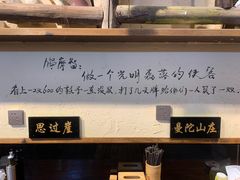 做一个光明磊落的侠客
看上一双600的鞋子一直没买,打了几天牌给他们一人买了一双。
思过崖
曼陀山庄